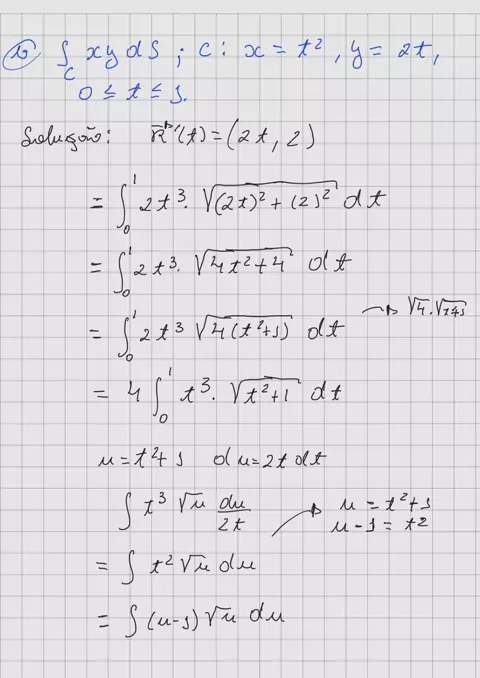 b) ∫_C xy ds ; C: x = t², y = 2t,
0 ≤ t ≤ 1.
Solução: R⃗'(t) = (2t, 2)
= ∫₀¹ 2t³ · √((2t)² + (2)²) dt
= ∫₀¹ 2t³ · √(4t² + 4) dt
= ∫₀¹ 2t³ √(4(t²+1)) dt → √4 · √(t²+1)
= 4 ∫₀¹ t³ · √(t²+1) dt
u = t² + 1 du = 2t dt
∫ t³ √u du/2t → u = t² + 1
u - 1 = t²
= ∫ t² √u du
= ∫ (u-1) √u du